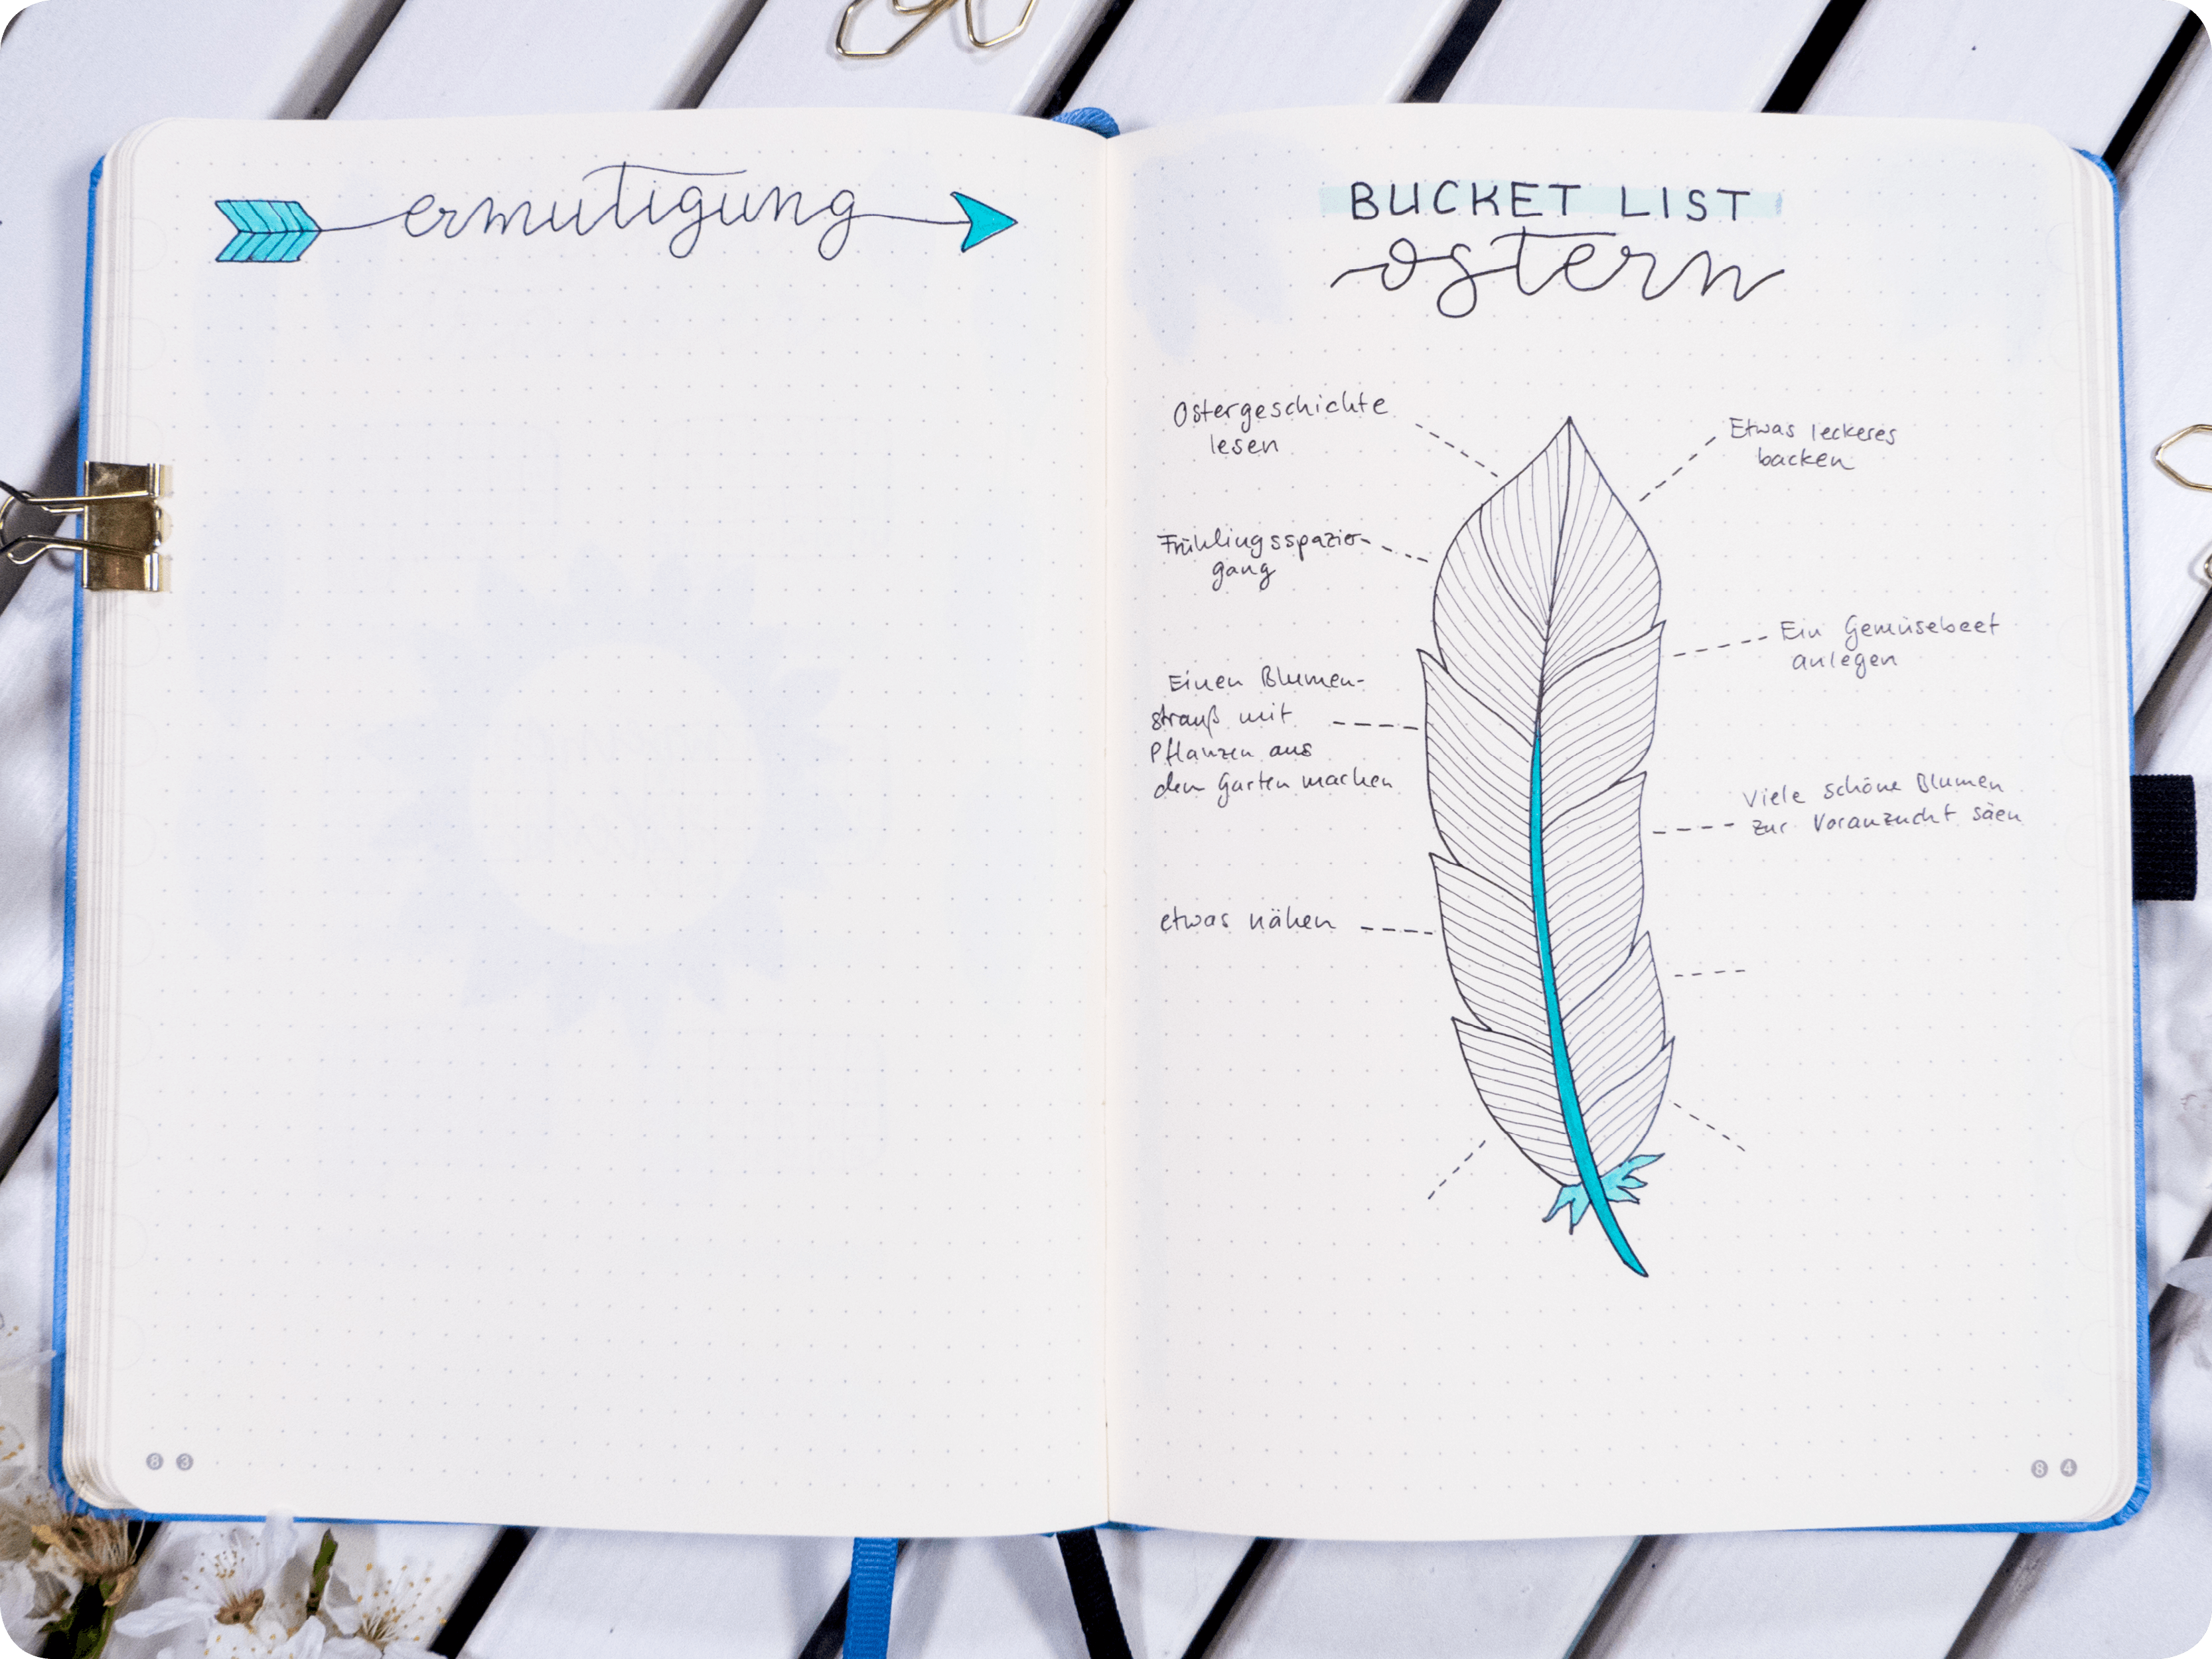 ermutigung
83
BUCKET LIST
ostern
Ostergeschichte
lesen
Frühlingsspazier-
gang
Einen Blumen-
strauß mit
Pflanzen aus
dem Garten machen
etwas nähen
Etwas leckeres
backen
Ein Gemüsebeet
anlegen
Viele schöne Blumen
zur Voranzucht säen
84